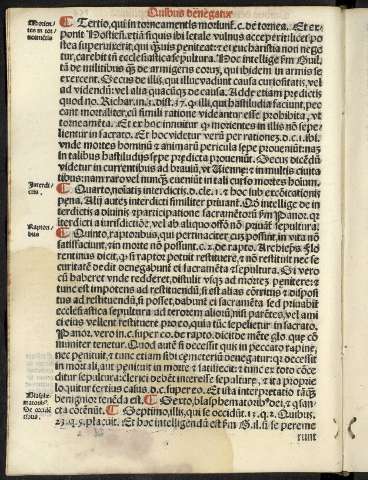 Quibus denegatur
Morien/
tes in tor
neamētis
Tertio, qui in torneamentis moriunt. c. d̄ tornea. Et ex
ponit Hostien. etiā si quis ibi letale vulnus acceperit: licet po
stea superuixerit, qui qꝫuis peniteat: et ei eucharistia non nege
tur, carebit tn̄ ecclesiastica sepultura. Hoc intellige ẜm Guil.
tm̄ de militibus qꝫ de armigeris eorum, qui ibidem in armis se
exercent. Secus de illis, qui illuc vadunt causa curiositatis, vel
ad videndū: vel alia quacūqꝫ de causa. Adde etiam predictis
quod no. Richar. in .3. dist. 37. qꝫ illi, qui hastiludia faciunt, pec
cant mortaliter, cū simili ratione videantur esse prohibita, vt
torneamēta. Et ex hoc innuitur qꝫ morientes in illis nō sepe-
lientur in sacro. Et hoc videtur verū per rationes. d. c. 1. ibi.
vnde mortes hominū et animarū pericula sepe proueniūt: nā
in talibus hastiludijs sepe predicta proueniūt. Secus dicēdū
videtur in currentibus ad brauiū, vt Vienne: et in multis ciuita
tibus: nam raro vel nunqꝫ eueniūt in tali cursu mortes hoīum.
Interdi/
cti.
Quarto, noīatis interdictis. d. cle. 1. et hoc sub excōicationis
pena. Alij autē interdicti similiter priuant. Qd̄ intellige de in
terdictis a diuinis et participatione sacramētorū ẜm Panor. qꝫ
interdicti a iurisdictiōe, vel ab aliquo offō nō priuāt̄ sepultura.
Raptori
bus
Quinto, raptoribus, qui pertinaciter, cuꝫ possint, in vita nō
satisfaciunt, et in morte nō possunt. c. 2. de rapto. Archiep̄s. Flo
rentinus dicit, qꝫ si raptor potuit restituere, et nō restituit nec se
curitatē dedit denegabunt̄ ei sacramēta et sepultura. Si vero
cū haberet vnde redderet, distulit vsqꝫ ad mortē et penitere: et
tunc est impotens ad restituendū, si est alias cōtritus et dispositus
ad restituendū, si posset, dabunt̄ ei sacramēta sed priuabit̄
ecclesiastica sepultura: ad terrorem aliorū, nisi parētes, vel ami
ci eius vellent restituere pro eo, quia tūc sepeliet̄ in sacro.
Panor. vero in. c. super eo. de rapto. dicit de mēte glo. que cō
muniter tenetur. Quod autē si decessit quis in peccato rapine,
nec penituit, et tunc etiam sibi cemeterū denegatur: qꝫ decessit
in mortali, aut penituit in morte et satisfecit: et tunc ex toto conce
ditur sepultura: clerici debēt interesse sepulture, et ita proprie
loquitur tertius casus. d. c. super eo. Et ista interpretatio tāqꝫ
Blasphe
matoribꝰ.
benignior tenēda est. Sexto, blasphematoribꝰ dei, et qꝫ san-
De occidē
tibus.
cta cōtēnūt. Septimo, illis, qui se occidūt. 23. q. 2. Quibus.
23. q. 5. placuit. Et hoc intelligendū est ẜm G. il. si se pereme
runt